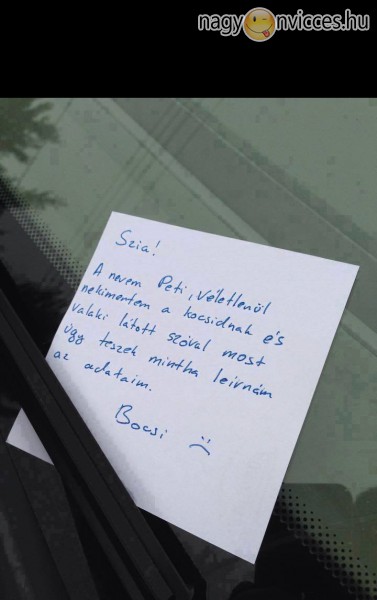 nagyonvicces.hu
Szia!
A nevem Peti, véletlenül
nekimentem a kocsidnak és
valaki látott szóval most
úgy teszek mintha leírnám
az adataim.
Bocsi :(